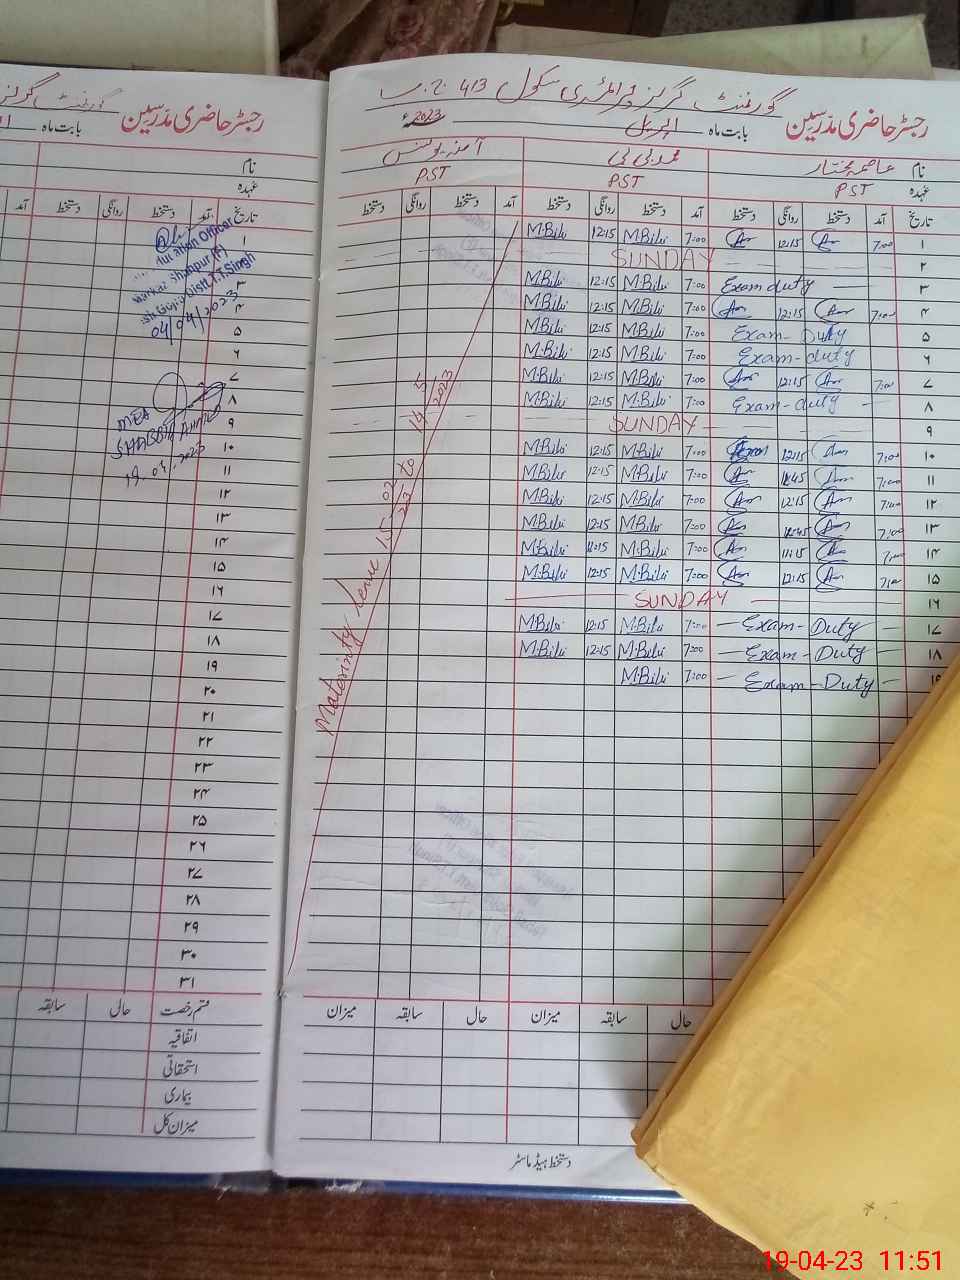 گورنمنٹ گرلز پرائمری سکول 413 ج ب
رجسٹر حاضری مدرسین بابت ماہ اپریل 2023ء
نام عاصمہ مختار
عہدہ PST PST PST
تاریخ آمد دستخط روانگی دستخط آمد دستخط روانگی دستخط آمد دستخط روانگی دستخط
۱ 7:00 12:15 7:00 M.Bibi 12:15 M.Bibi
۲ SUNDAY
۳ Exam duty 7:00 M.Bibi 12:15 M.Bibi
۴ 7:00 12:15 7:00 M.Bibi 12:15 M.Bibi
۵ Exam-Duty 7:00 M.Bibi 12:15 M.Bibi
۶ Exam-duty 7:00 M.Bibi 12:15 M.Bibi
۷ 7:00 12:15 7:00 M.Bibi 12:15 M.Bibi
۸ Exam-duty 7:00 M.Bibi 12:15 M.Bibi
۹ SUNDAY
۱۰ 7:00 12:15 7:00 M.Bibi 12:15 M.Bibi
۱۱ 7:00 7:00 M.Bibi 12:15 M.Bibi
۱۲ 7:00 12:15 7:00 M.Bibi 12:15 M.Bibi
۱۳ 7:00 7:00 M.Bibi 12:15 M.Bibi
۱۴ 7:00 11:15 7:00 M.Bibi 11:15 M.Bibi
۱۵ 7:00 12:15 7:00 M.Bibi 12:15 M.Bibi
۱۶ SUNDAY
۱۷ Exam-Duty 7:00 M.Bibi 12:15 M.Bibi
۱۸ Exam-Duty 7:00 M.Bibi 12:15 M.Bibi
Exam-Duty 7:00 M.Bibi
Materinity Leave 15-02/23 to 14 5/2023
حال سابقہ میزان حال سابقہ میزان
دستخط ہیڈ ماسٹر
رجسٹر حاضری مدرسین بابت ماہ
گورنمنٹ گرلز
نام
عہدہ
تاریخ آمد دستخط روانگی دستخط آمد
۱
۲
۳
۴
۵
۶
۷
۸
۹
۱۰
۱۱
۱۲
۱۳
۱۴
۱۵
۱۶
۱۷
۱۸
۱۹
۲۰
۲۱
۲۲
۲۳
۲۴
۲۵
۲۶
۲۷
۲۸
۲۹
۳۰
۳۱
Officer
Markaz Shahpur (F)
Distt. T.T.Singh
04/04/2023
MEA
SHABBIR AHMED
19.04.2023
قسم رخصت حال سابقہ
اتفاقیہ
استحقاقی
بیماری
میزان کل
19-04-23 11:51